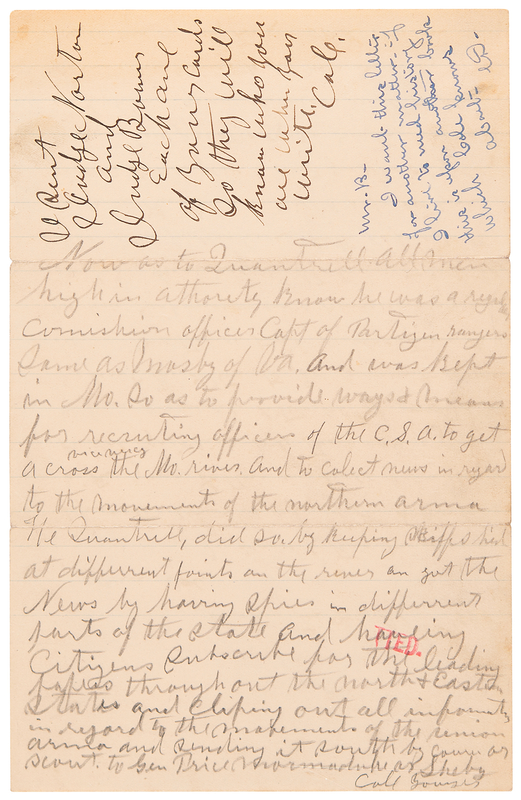 I sent
Judge Norton
and
Judge
Each one
of your cards
So they will
know who you
are when you
write.
Mr. B—
I want this letter
for another matter - if
I
this is for another book
which about
Now as to Quantrell. All men
high in athorety know he was a
Comishion officer Capt of Partizen rangers
Same as Mosby of Va. And was kept
in Mo. So as to provide ways & means
for recruting officers of the C.S.A. to get
across the Mo. river. And to colect news in regard
to the movements of the northern arma
He Quantrell, did so by keeping skiffs hid
at differrent points on the river an got the
News by having spies in differrent
parts of the State and haveing
TIED.
Citizens Subscribe for the leading
papers throughout the north & Eastern
States and Cliping out all
in regard to the movements of the union
arma and sending it South by courier or
scout. to Gen Price or Shelby